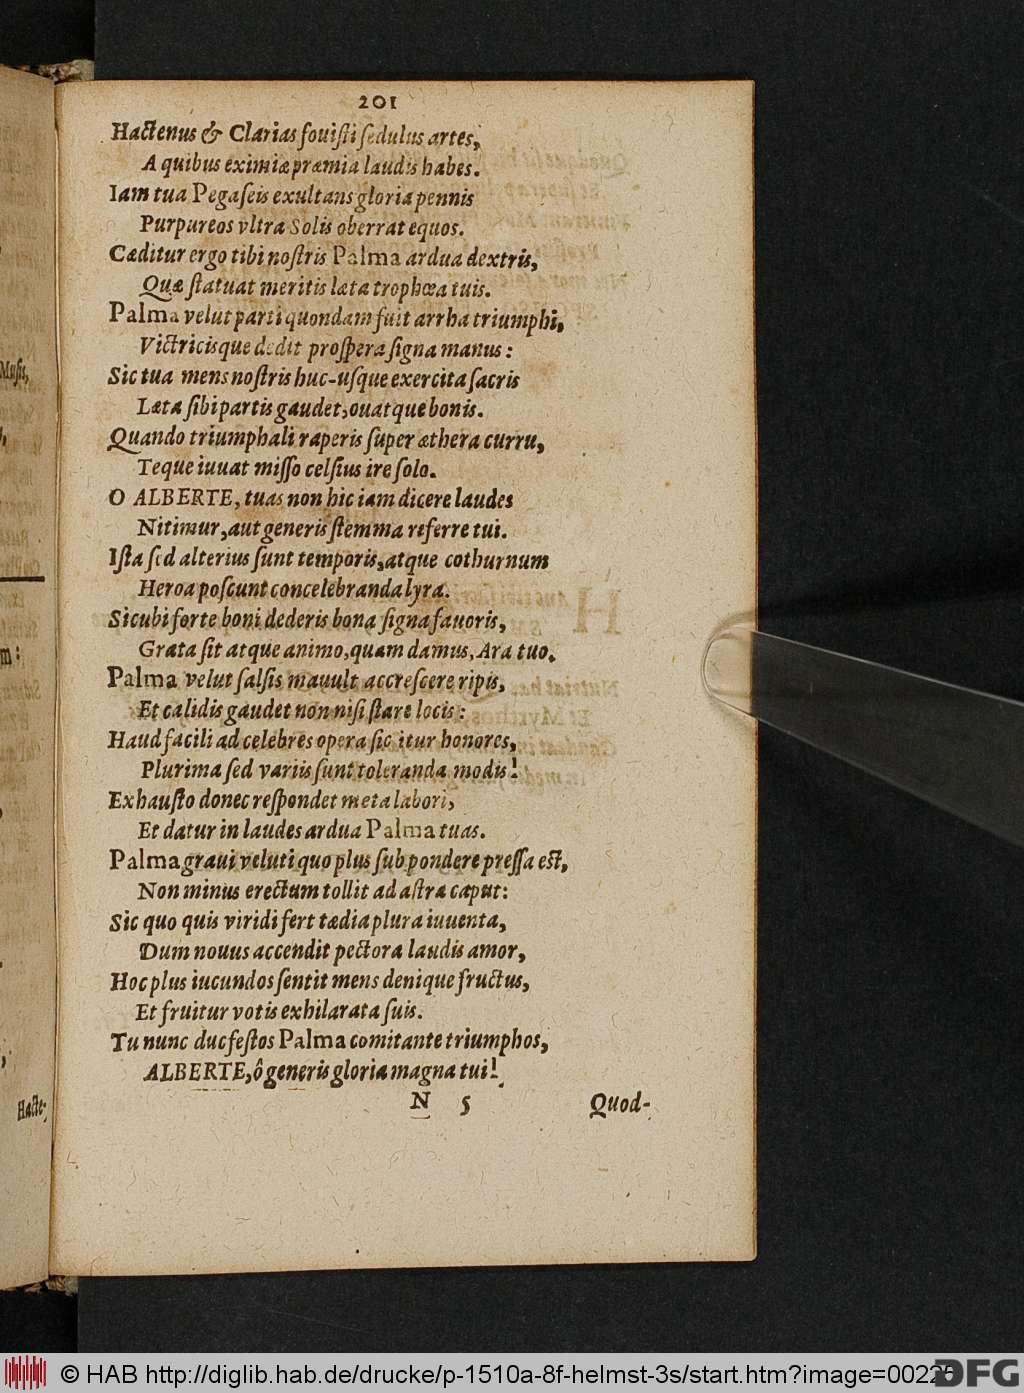 201
Hactenus & Clarias fouiſti ſedulus artes,
A quibus eximiæ præmia laudis habes.
Iam tua Pegaſeis exultans gloria pennis
Purpureos vltra Solis oberrat equos.
Cæditur ergo tibi noſtris Palma ardua dextris,
Quæ ſtatuat meritis læta trophœa tuis.
Palma velut parti quondam fuit arrha triumphi,
Victricisque dedit proſpera ſigna manus:
Sic tua mens noſtris huc-uſque exercita ſacris
Læta ſibi partis gaudet, ouatque bonis.
Quando triumphali raperis ſuper æthera curru,
Teque iuuat miſſo celſius ire ſolo.
O ALBERTE, tuas non hic iam dicere laudes
Nitimur, aut generis ſtemma referre tui.
Iſta ſed alterius ſunt temporis, atque cothurnum
Heroa poſcunt concelebranda lyra.
Sicubi forte boni dederis bona ſigna fauoris,
Grata ſit atque animo, quam damus, Ara tuo.
Palma velut ſalſis mauult accreſcere ripis,
Et calidis gaudet non niſi ſtare locis:
Haud facili ad celebres opera ſic itur honores,
Plurima ſed variis ſunt toleranda modis!
Exhauſto donec reſpondet meta labori,
Et datur in laudes ardua Palma tuas.
Palma graui veluti quo plus ſub pondere preſſa eſt,
Non minus erectum tollit ad aſtra caput:
Sic quo quis viridi fert tædia plura iuuenta,
Dum nouus accendit pectora laudis amor,
Hoc plus iucundos ſentit mens denique fructus,
Et fruitur votis exhilarata ſuis.
Tu nunc duc feſtos Palma comitante triumphos,
ALBERTE, ô generis gloria magna tui!
N 5 Quod-
Muſis,
m:
Hacte-
© HAB http://diglib.hab.de/drucke/p-1510a-8f-helmst-3s/start.htm?image=00225
DFG